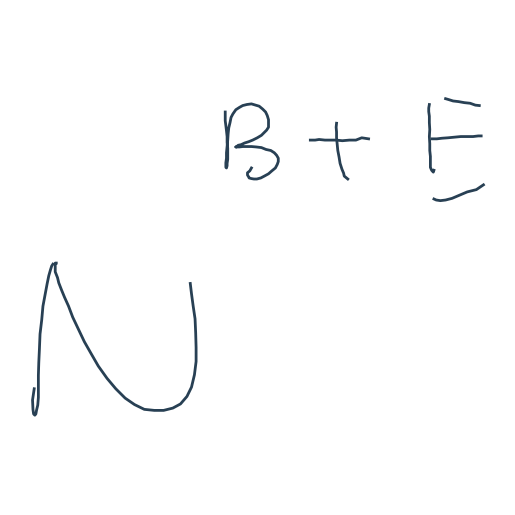 B + E
N